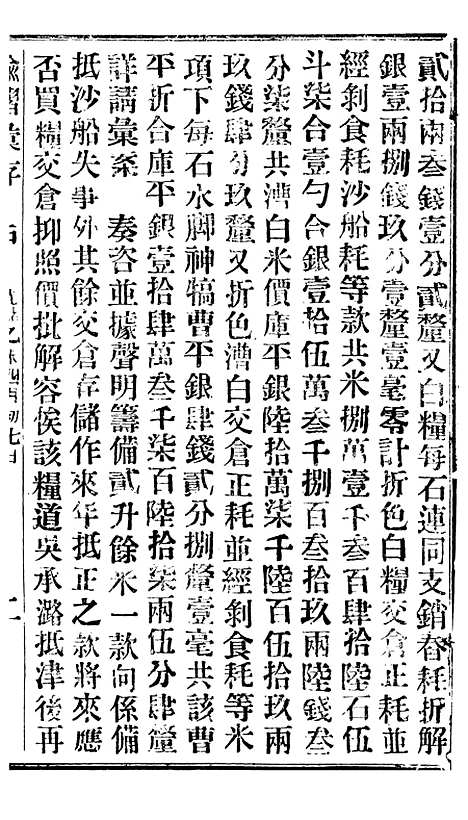 貳拾兩叁錢壹分貳釐又白糧每石連同支銷舂耗折解
銀壹兩捌錢玖分壹釐壹毫零計折色白糧交倉正耗並
經剝食耗沙船耗等款共米捌萬壹千叁百肆拾陸石伍
斗柒合壹勺合銀壹拾伍萬叁千捌百叁拾玖兩陸錢叁
分柒釐共漕白米價庫平銀陸拾萬柒千陸百伍拾玖兩
玖錢肆分玖釐又折色漕白交倉正耗並經剝食耗等米
項下每石水脚神犒曹平銀肆錢貳分捌釐壹毫共該曹
平折合庫平銀壹拾肆萬叁千柒百陸拾柒兩伍分肆釐
詳請彙案 奏咨並據聲明籌備貳升餘米一款向係備
抵沙船失事外其餘交倉存儲作來年抵正之款將來應
否買糧交倉抑照價批解容俟該糧道吳承潞抵津後再